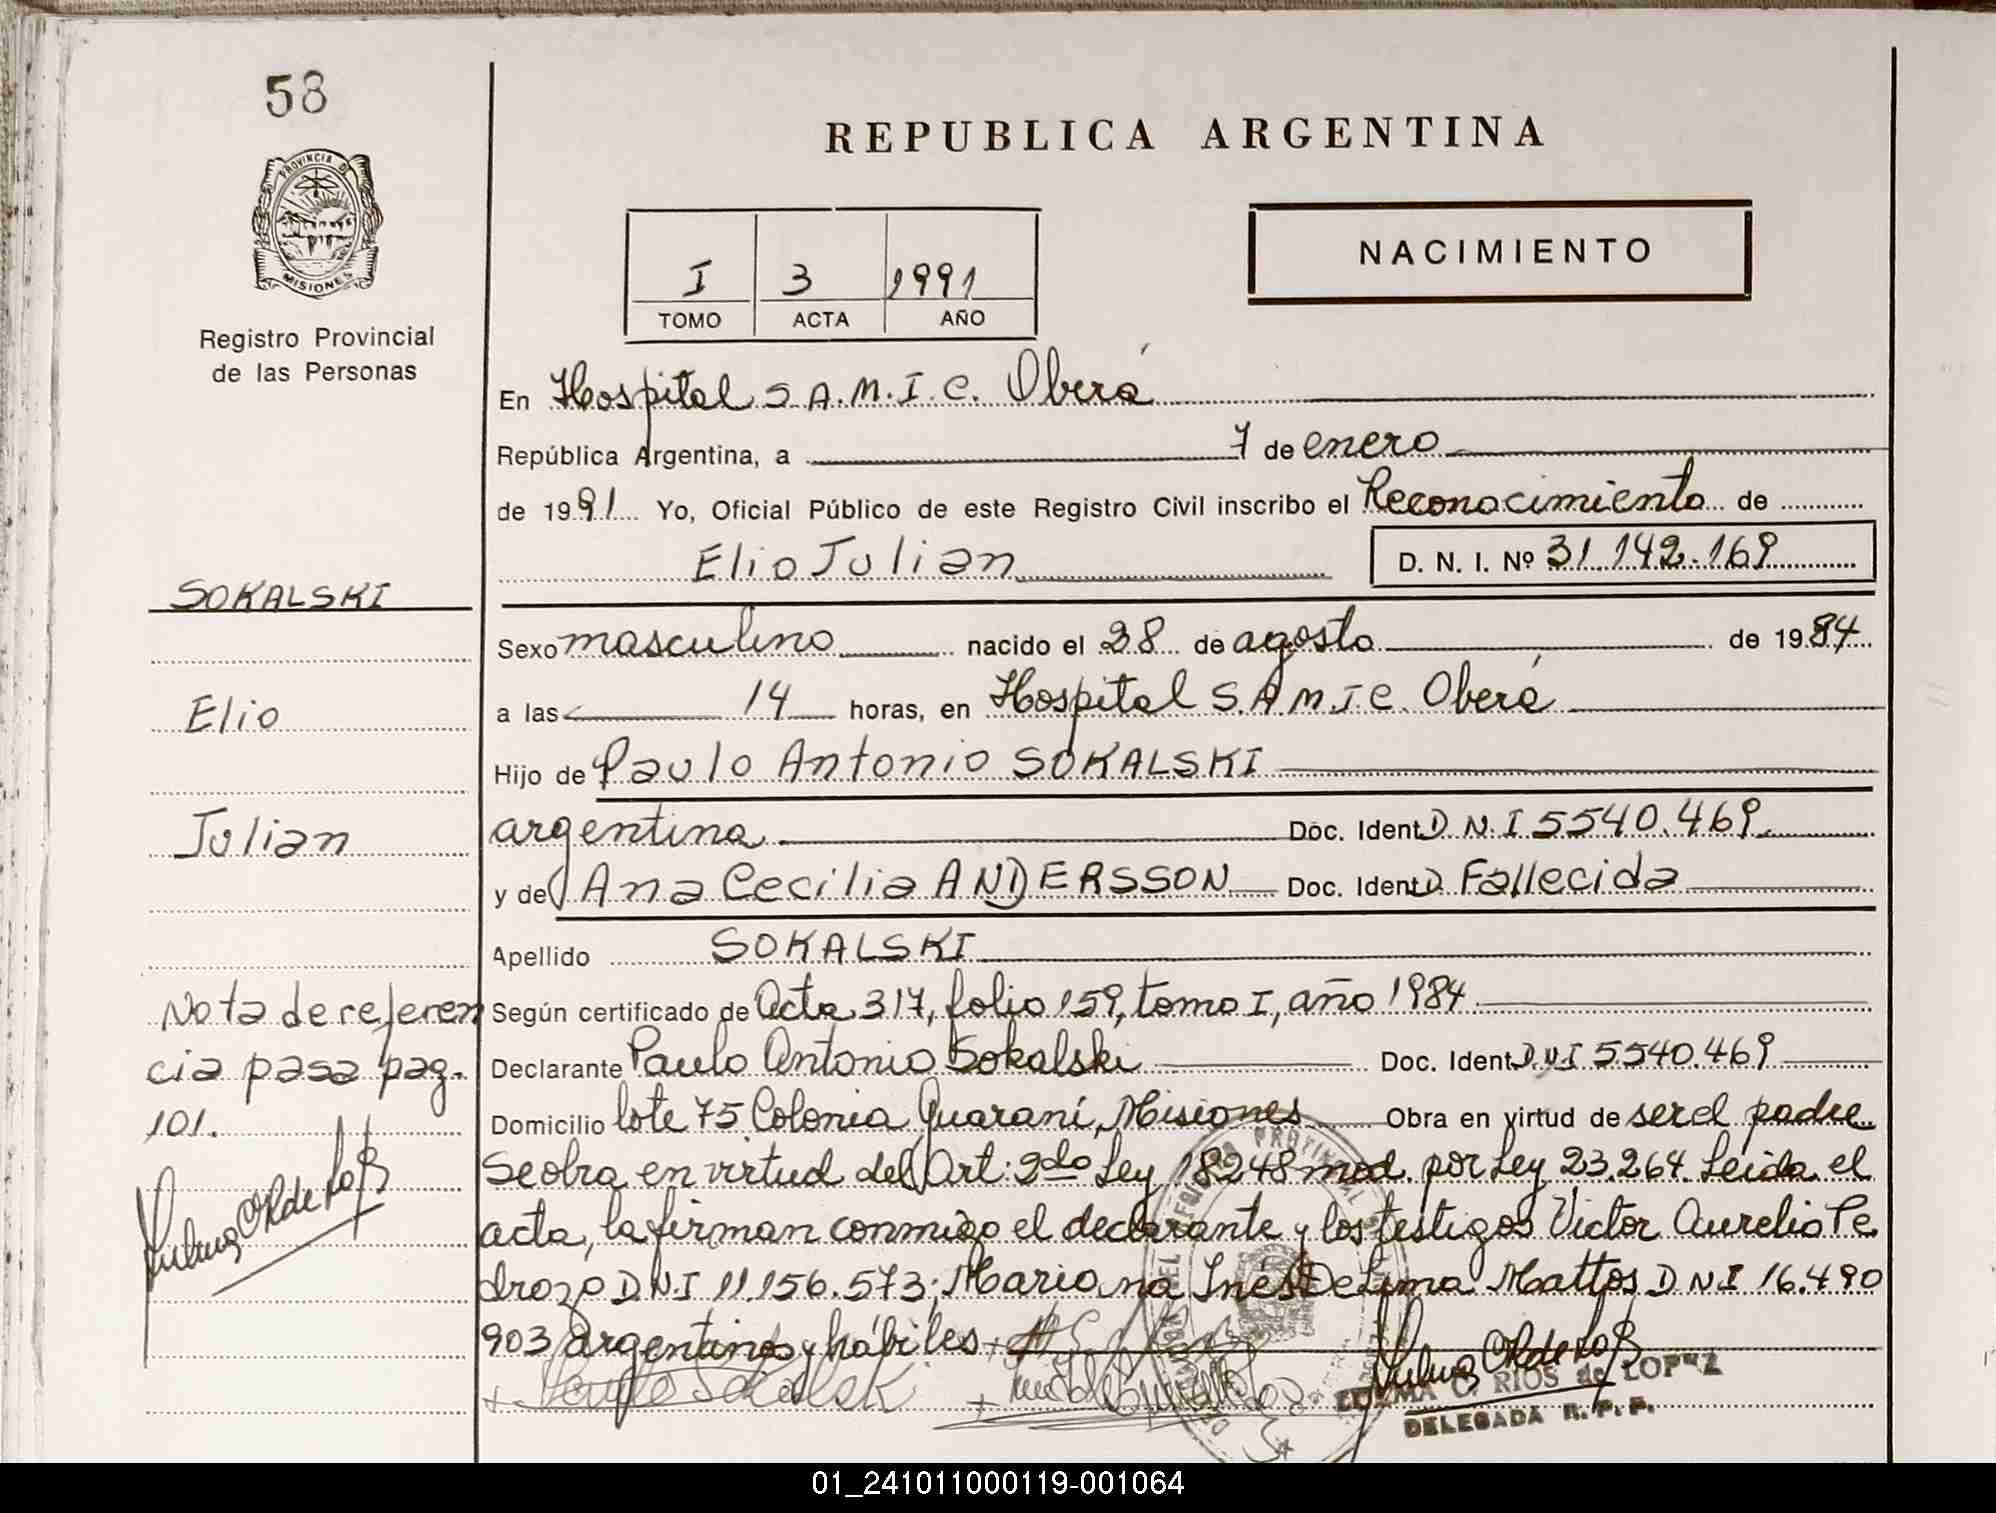 58
REPUBLICA ARGENTINA
PROVINCIA D
MISIONES
NACIMIENTO
I 3 1991
TOMO ACTA AÑO
Registro Provincial
de las Personas
En Hospital S.A.M.I.C. Oberá
República Argentina, a 7 de enero
de 1991 Yo, Oficial Público de este Registro Civil inscribo el Reconocimiento de
Elio Julian D. N. I. Nº 31.142.169
SOKALSKI
Sexo masculino nacido el 28 de agosto de 1984
Elio
a las 14 horas, en Hospital S.A.M.I.C. Oberá
Hijo de Paulo Antonio SOKALSKI
Julian
argentina Doc. Ident D.N.I 5540.469
y de Ana Cecilia ANDERSSON Doc. Ident Fallecida
Apellido SOKALSKI
Nota de referen
cia pasa pag.
101.
Según certificado de Acta 317, folio 159, tomo I, año 1984
Declarante Paulo Antonio Sokalski Doc. Ident D.N.I 5540.469
Domicilio lote 75 Colonia Guaraní, Misiones Obra en virtud de ser el padre
Se obra en virtud del Art: 2do Ley 18248 mod. por Ley 23.264. Leída el
acta, la firman conmigo el declarante y los testigos Victor Aurelio Pe
drozo D.N.I 11.156.573; Mariana Inés De Lima Mattos D N I 16.490
903 argentinos y hábiles
Paulo Sokalski
C. RIOS de LOPEZ
DELEGADA R. P. P.
01_241011000119-001064